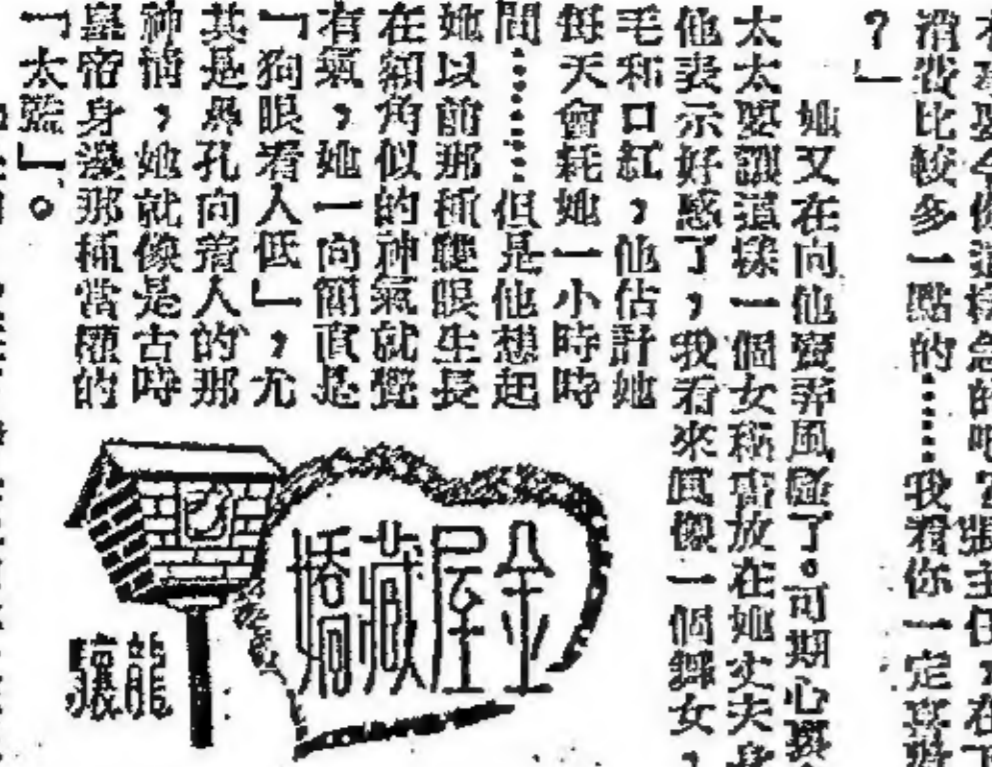 你這樣急的吧?張主任,在下
消費比較多一點的……我看你一定
?」
她又在向他賣弄風騷了。可期心
太太要讓這樣一個女秘書放在她丈夫身
他表示好感了,我看來真像一個舞女,
毛和口紅,他估計她
每天會耗她一小時時
間……但是他想起
她以前那種雙眼生長
在額角似的神氣就覺
有氣,她一向簡直是
「狗眼看人低」,尤
其是鼻孔向着人的那
神情,她就像是古時
皇帝身邊那種當權的
「太監」。
金屋藏嬌
龍驤